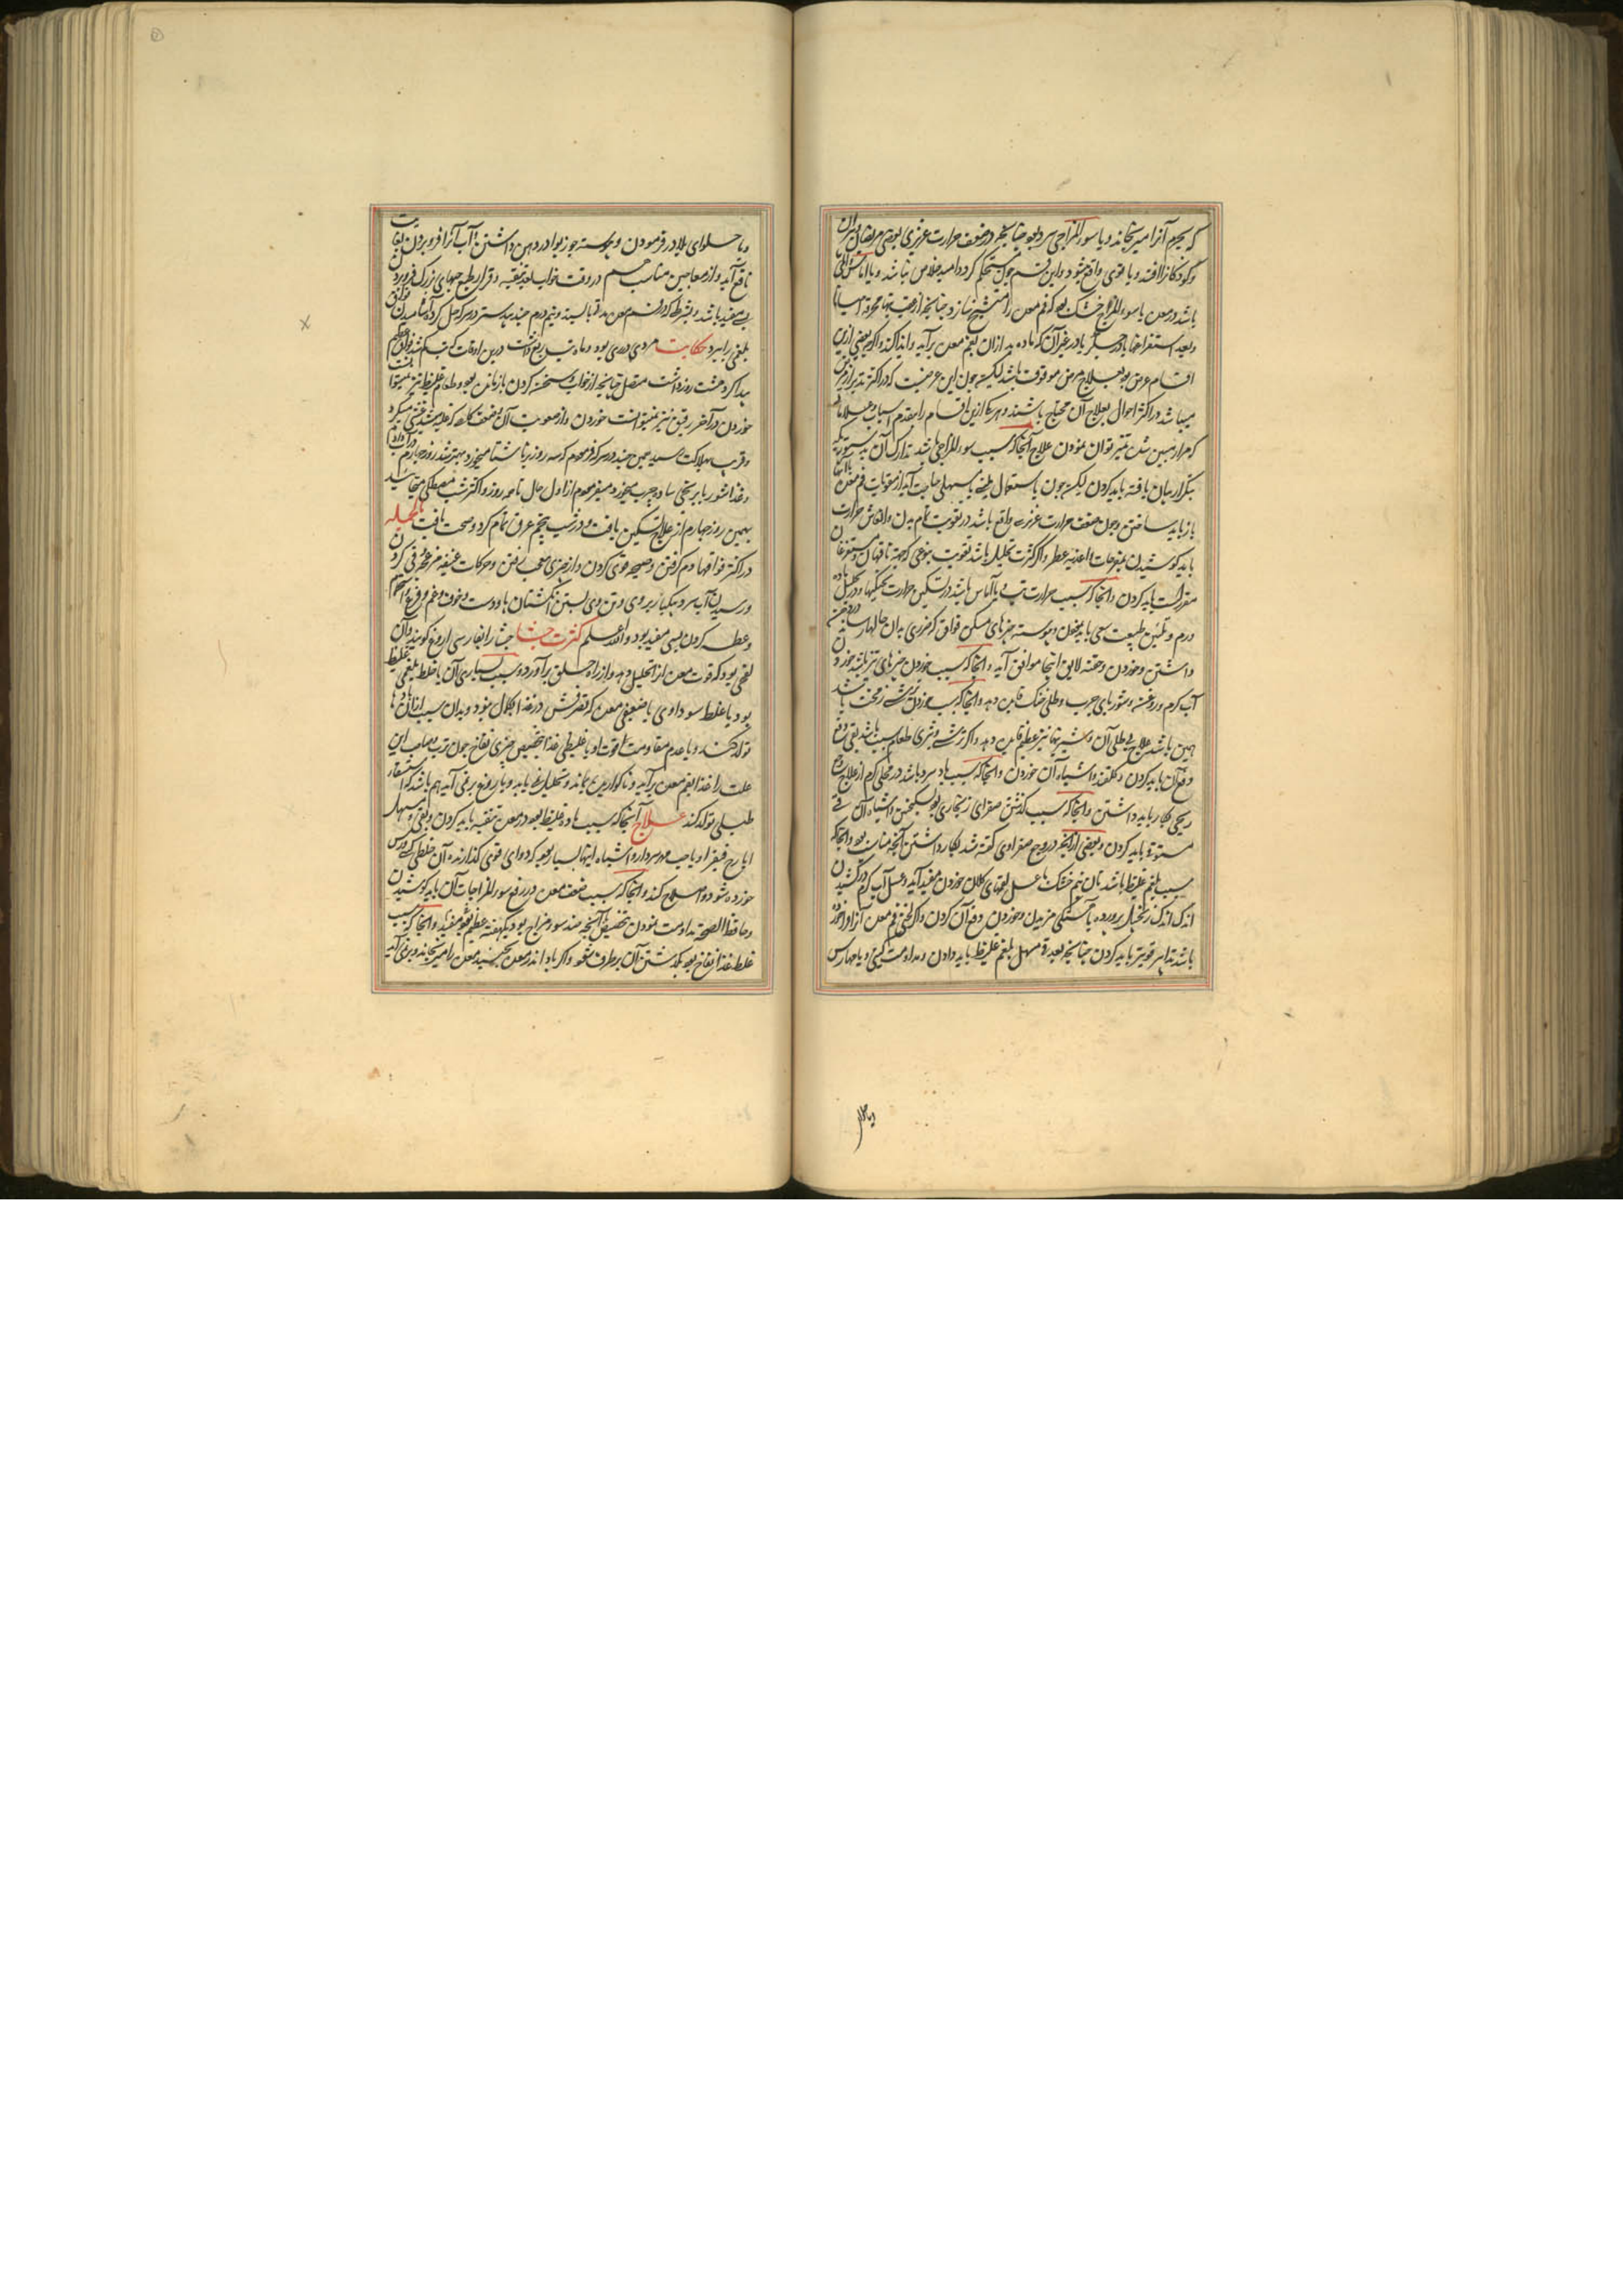 که بجرم آنرا میرنجاند و یا سوء المزاجی سرد بود چنانچه در ضعف حرارت غریزی بعضی مریضان و پیران
و کودکانرا افتد و یا قوی واقع شود و این قسم چون مستحکم گردد امید خلاص نباشد و یا
باشد در معده یا سوء المزاج خشک بود که فم معده را متشنج سازد چنانچه از عقب تبهای محرقه
و بعد استفراغها یا در جگر یا در غیر آن که ماده بد ازان بفم معده برآید و ایذا کند و اگر بعضی ازین
اقسام عرض بود بعلاج مرض موقوف باشد لیکن چون این عرضیست که در اکثر
میباشد در اکثر احوال بعلاج آن محتاج باشند و هر یکا ازین اقسام را مقدم اسباب و علامات
که مرارا مبین شده تمیز توان نمودن علاج آنجا که سبب سوء المزاجی باشد تدارک آن
بتکرار بیان یافته باید کردن لیکن چون باستعمال مسهلی حاجت آید از مقویات فم معده
باز باید ساختن و چون ضعف حرارت غریزی واقع باشد در تقویت تمام بدن و انعاش حرارت
باید کوشیدن بمفرحات و اغذیه عطر و اگر کثرت تحلیل باشد تقویت بنوعی که جهة ناقهان
مقررست باید کردن و آنجا که سبب حرارت تب و یا آماس باشد در تسکین حرارت تب و تحلیل ماده
ورم و تلیین طبیعت سعی باید نمودن و پیوسته چیزهای مسکن فواق که ضرری بدان حالها
داشتن و خوردن و حقنه لایق اینجا موافق آید و آنجا که سبب خوردن چیزهای تیز باشد خوردن
آب گرم و روغن و شوربای چرب و طلی خنک فایده دهد و آنجا که سبب خوردن ترشی زمخت باشد
همین باشد علاج بی طلی آن و شیرینیها نیز عظیم فایده دهد و اگر ترشی و تیزی طعام سبب باشد بقی دفع
دفع آن باید کردن و گلقند و اشباه آن خوردن و آنجا که سبب باد سرد باشد در محلی گرم از علاج
ریحی بکار باید داشتن و آنجا که سبب گذشتن صفرای زنجاری بود بسکنجبین و اشباه آن قی
مستوفی باید کردن و بعضی از آنچه در وجع صفراوی گفته شد بکار داشتن آنچه مناسب بود و آنجا که
سبب بلغم غلیظ باشد نان نیم خشک با عسل لقمهای کلان خوردن مفید آید و عسل آب گرم در کشیدن
اندک اندک زنجبیل پرورده بآهستگی مزیدن و خوردن و قی آن کردن و اگر تلخی فم معده ازو آزرده
باشد تدابیر قویتر باید کردن چنانچه بعد قی مسهل بلغم غلیظ باید دادن و مداومت
و یا حلوای
و یا حلوای بلادر فرمودن و پیوسته جوزبوا در دهن داشتن و آب آنرا فرو بردن بغایت
نافع آید و از معاجین مناسب هم در وقت خواب بعد تنقیه و قرار طبع حبهای بزرگ فرو برد
بس مفید باشد بشرط که ورم معده نباشد و نیم درم جندبیدستر در سرکه حل کرده آشامیدن فواق
بلغمی را ببرد حکایت مردی دردی بود و ماه تب ربع داشت درین اوقات که تب کم شد فواق عظیم
پیدا کرد هشت روز داشت متصل چنانچه از خواب و سخن کردن باز ماند بود و طعام غلیظ نیز نمیتوانست
خوردن و آخر رقیق نیز نمیتوانست خوردن و از صعوبت آن ضعف کلی کرد غشی میکرد
و قریب بهلاکت رسید من جند در سرکه فرمودم که سه روز بناشتا میخورد بهتر شد روز چهارم در آب داد
و غذا شوربای برنجی ساده چرب میخورد و میفرمودم از اول حال تا سه روز و اکثر شب مصطکی میخاید
بهمین روز چهارم ازین علاج تسکین یافت و در شب پنجم عرق تمام کرد و صحت یافت بالجمله
در اکثر فواقها دم گرفتن و صیحه قوی کردن و از چیزی عجب رفتن و حرکات عنیفه غیر معروفی کردن
و رسیدن آب سرد بیکبار بروی و تن وی و بستن انگشتان پا و دست و خوف و غم و فرح و خشم
و عطسه کردن بسی مفید بود و الله اعلم کثرت جشا جشا را بفارسی آروغ گویند و آن
نفخی بود که قوت معده آنرا تحلیل دهد و از راه حلق برآورد و سبب بسیاری آن یا خلط بلغمی غلیظ
بود یا خلط سوداوی یا ضعیفی معده که تصرفش در غذا بکمال نبود و بدان سبب ازان بادها
تولد کند و یا عدم مقاومت قوت او با غلیظی غذا بتخصیص چیزی نفاخ چون ترب و صاحب این
علت را غذا بفم معده برآید و ناگواریده بماند و تحلیل نیابد و باروغ برنمی آید هم باشد که استسقاء
طبلی تولد کند علاج آنجا که سبب ماده غلیظ بود در معده تنقیه باید کردن و بقی و مسهل
ایارج فیقرا و یا حب و اشباه اینها بسیار بود که دوای قوی گذارنده آن خلط
خورده شود و اصلاح کند و آنجا که سبب ضعف معده بود در رفع سوء المزاجات آن باید کوشیدن
و حافظ الصحه مداومت نمودن بتخصیص آنچه ضد سوء مزاج بود یکهفته عظیم مفید بود و آنجا که سبب
غلط غذا نفاخ بود بگذشتن آن برطرف شود و اگر باد اندر معده بجنبد معده را میرنجاند و برنمی آید